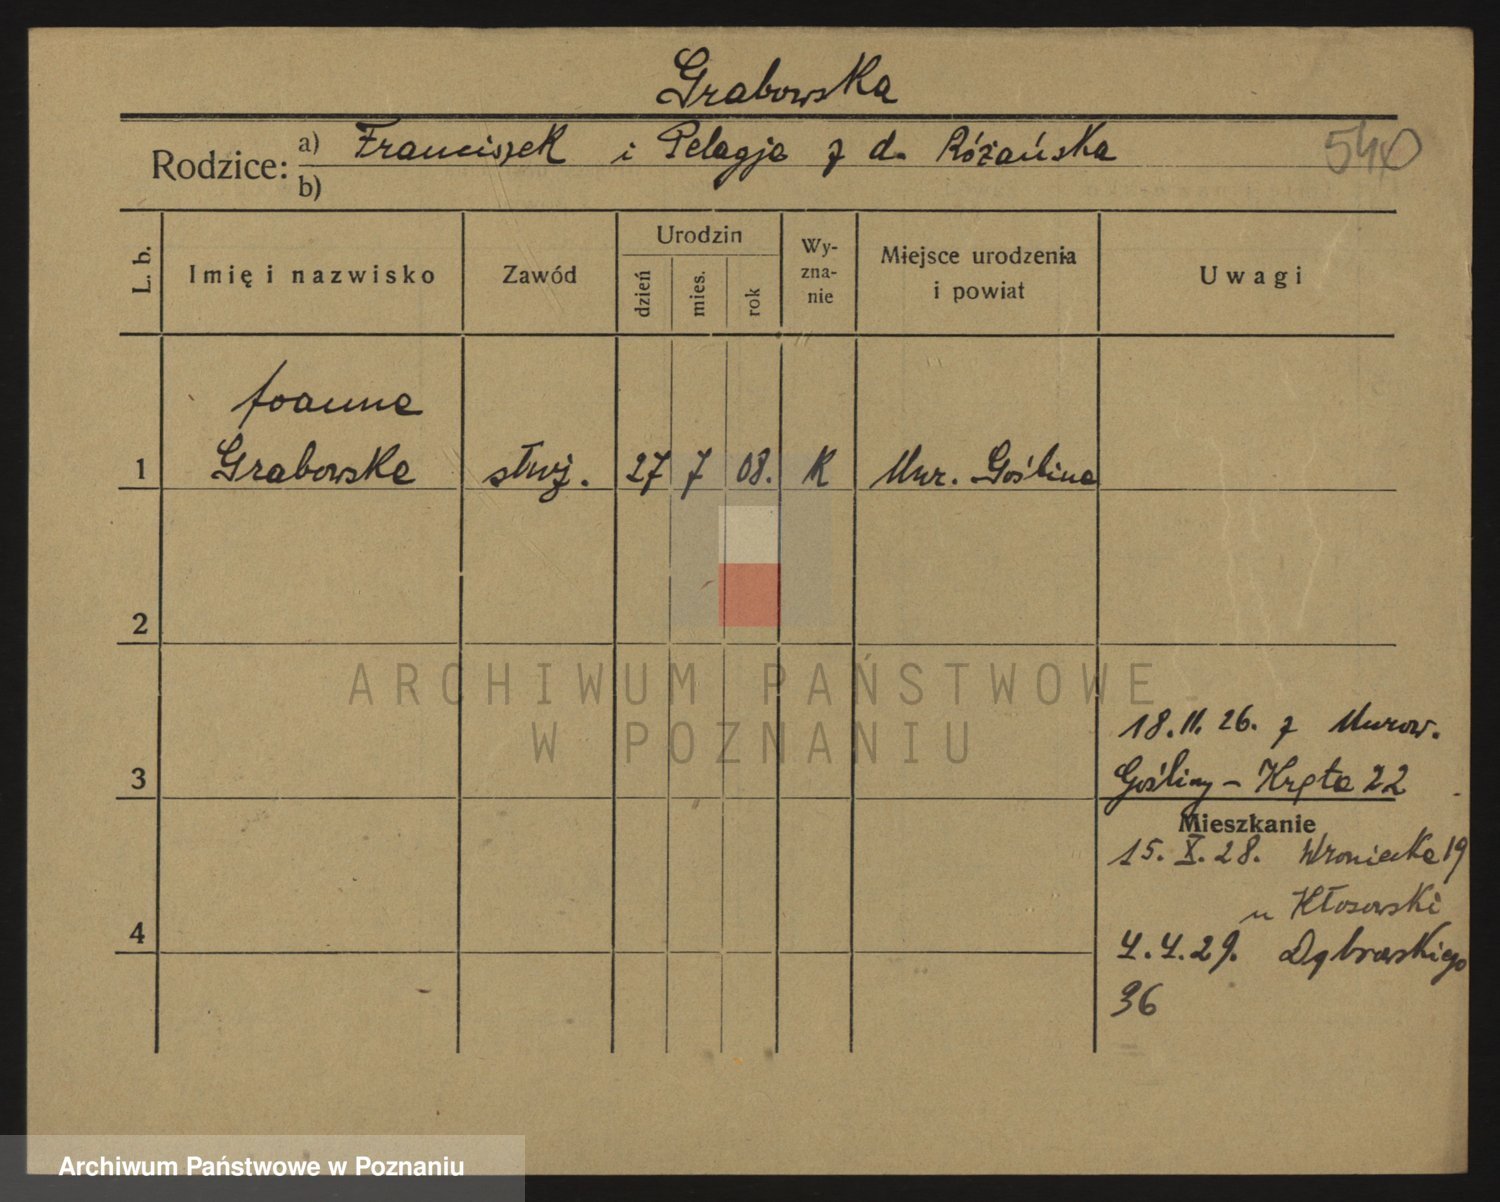 Grabowska
Rodzice: a) Franciszek i Pelagja z d. Różańska
b)
540
L. b.
Imię i nazwisko
Zawód
Urodzin
dzień
mies.
rok
Wy-
zna-
nie
Miejsce urodzenia
i powiat
Uwagi
Joanna
1 Grabowska służ. 27 7 08. K Mur. Goślina
2
ARCHIWUM PAŃSTWOWE
W POZNANIU
18.11.26. z Murow.
3 Gośliny – Kręta 22
Mieszkanie
15. X. 28. Wroniecka 19
u Kłosowski
4
4.4.29. Dąbrowskiego
36
Archiwum Państwowe w Poznaniu